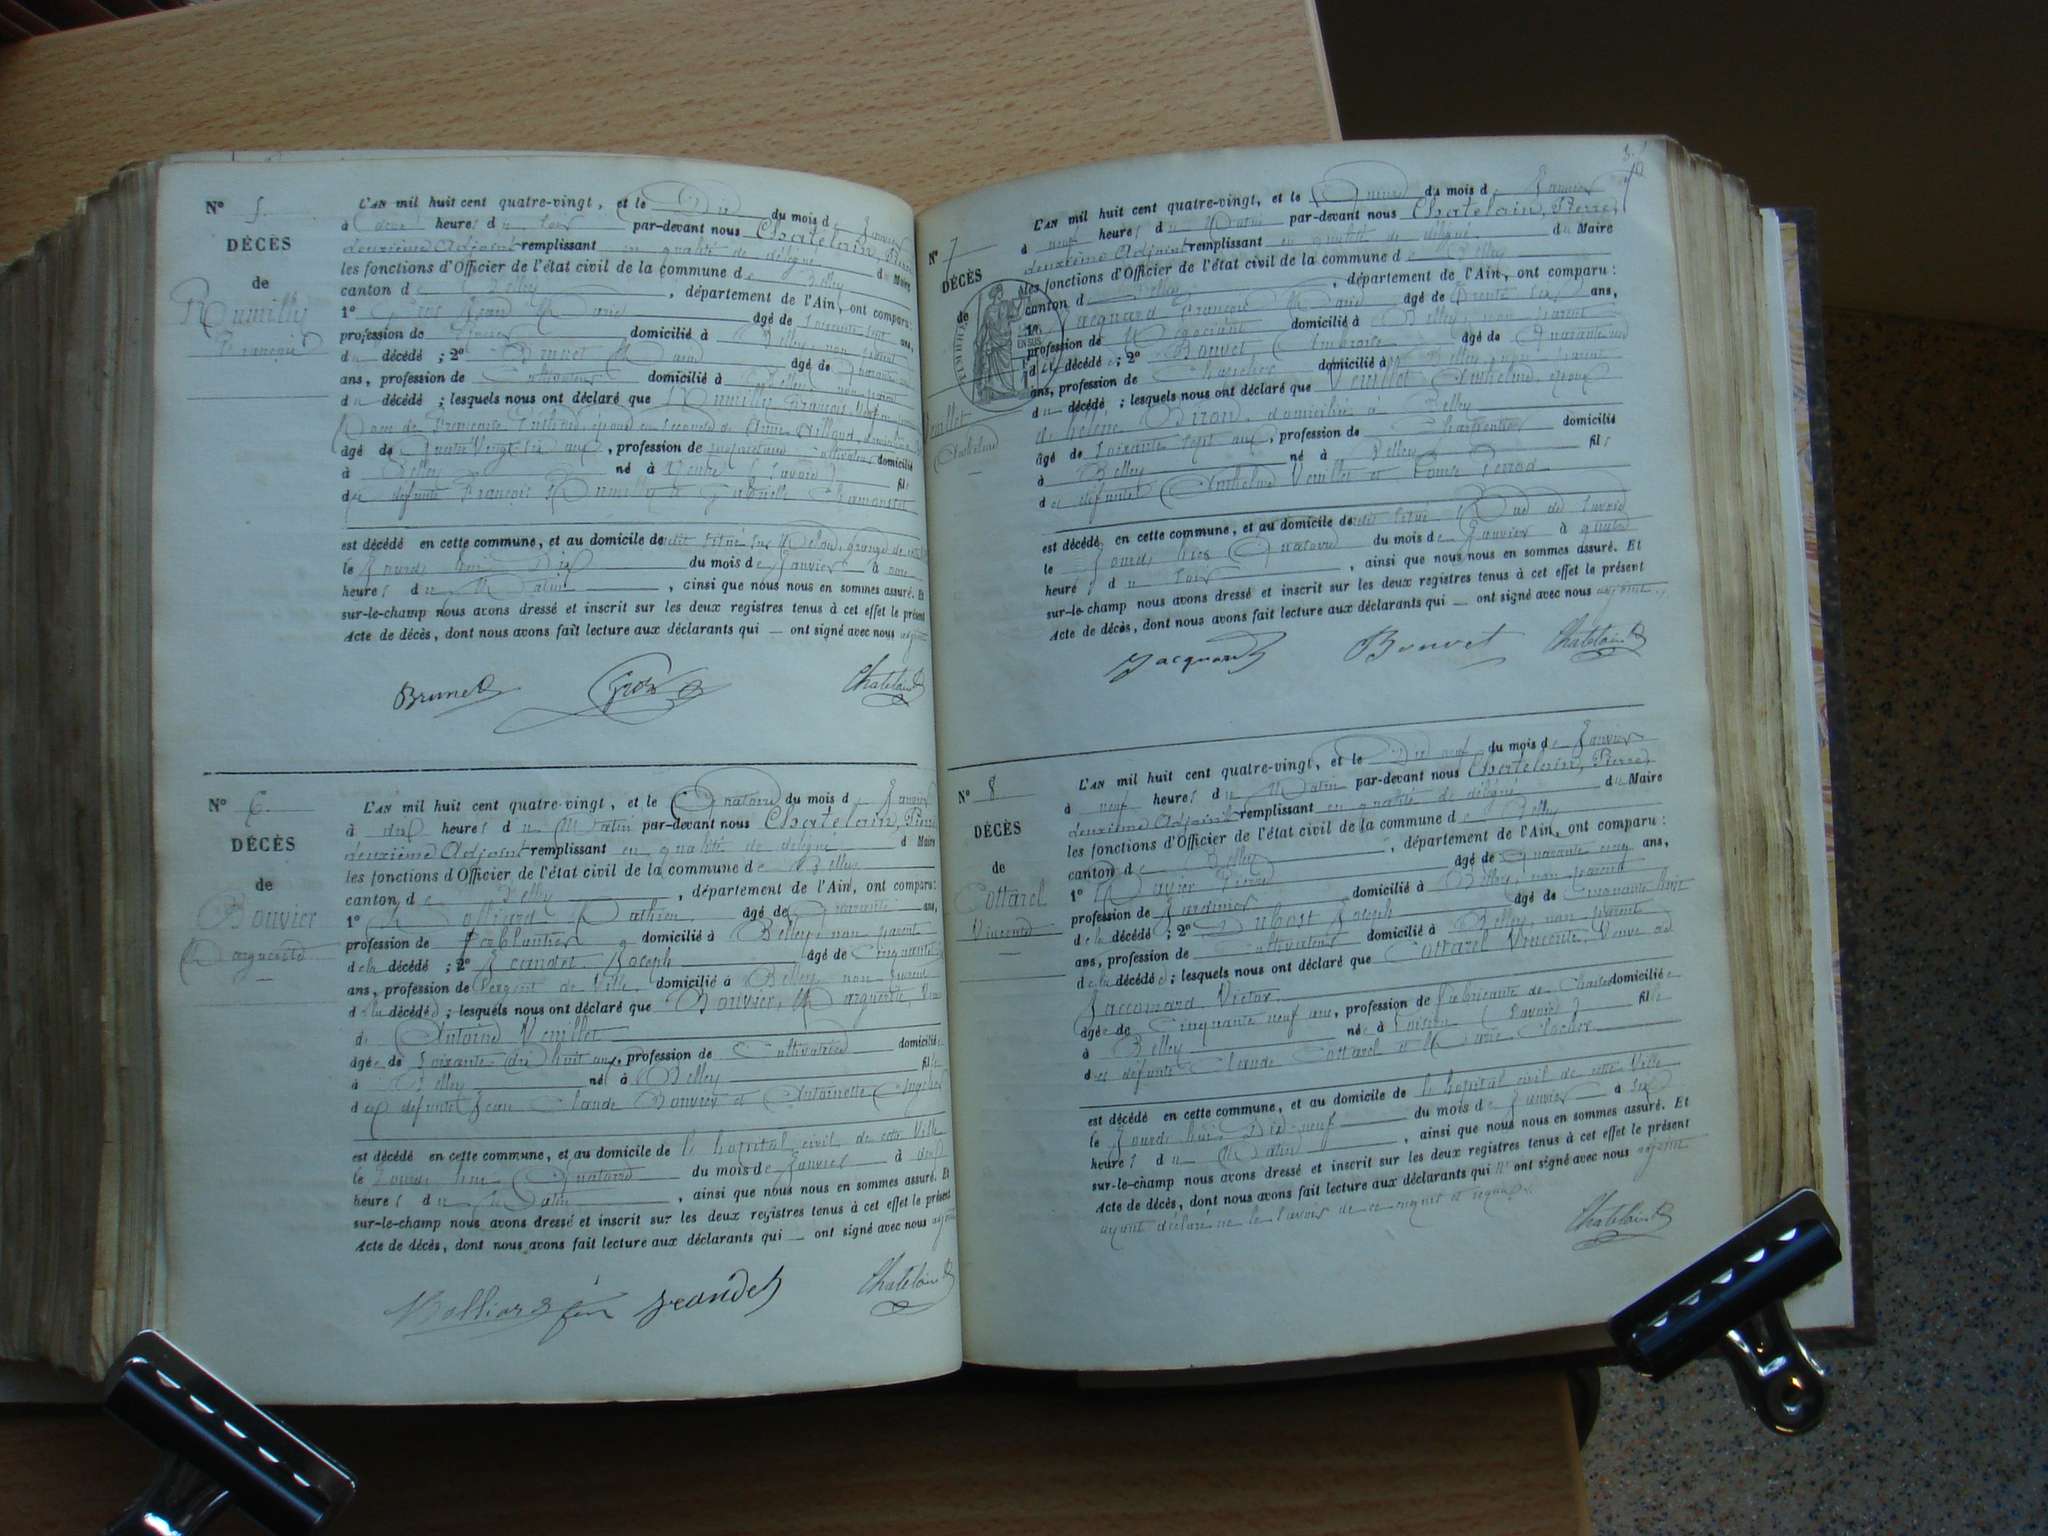 N° 5
DÉCÈS
de
Rumilly
François
L'AN mil huit cent quatre-vingt, et le Dix du mois de Janvier
à heures du soir par-devant nous Chatelain, Pierre
deuxième Adjoint remplissant en qualité de délégué du Maire
les fonctions d'Officier de l'état civil de la commune de Belley
canton de Belley, département de l'Ain, ont comparu :
1° Gros Jean Marie âgé de soixante sept ans,
profession de domicilié à Belley, non parent
du décédé ; 2° Brunet Marie âgé de Quarante
ans, profession de Cultivateur domicilié à Belley non parent
du décédé ; lesquels nous ont déclaré que Rumilly François,
de Françoise époux en secondes de Anne
âgé de Quatre Vingt six ans, profession de propriétaire Cultivateur domicilié
à Belley né à Yenne (Savoie) fils
des défunts François Rumilly &
est décédé en cette commune, et au domicile de
le Jourd'hui Dix du mois de Janvier à onze
heures du Matin, ainsi que nous nous en sommes assuré. Et
sur-le-champ nous avons dressé et inscrit sur les deux registres tenus à cet effet le présent
Acte de décès, dont nous avons fait lecture aux déclarants qui — ont signé avec nous adjoint
Brunet Gros Chatelain
N° 6
DÉCÈS
de
Bouvier
Marguerite
L'AN mil huit cent quatre-vingt, et le Quatorze du mois de Janvier
à dix heures du Matin par-devant nous Chatelain, Pierre
deuxième Adjoint remplissant en qualité de délégué d Maire
les fonctions d'Officier de l'état civil de la commune de Belley
canton de Belley, département de l'Ain, ont comparu :
1° Molliard Mathieu âgé de Quarante ans,
profession de Ferblantier domicilié à Belley non parent
de la décédé ; 2° Jeandet Joseph âgé de Cinquante
ans, profession de Sergent de Ville domicilié à Belley non parent
de la décédée ; lesquels nous ont déclaré que Bouvier, Marguerite, Veuve
de Antoine Veuillet
âgée de soixante dix huit ans, profession de Cultivatrice domiciliée
à Belley née à Belley fille
des défunts Jean Claude Bouvier et Antoinette
est décédé en cette commune, et au domicile de l'hopital civil de cette Ville
le Jourd'hui Quatorze du mois de Janvier à dix
heures du Matin, ainsi que nous nous en sommes assuré. Et
sur-le-champ nous avons dressé et inscrit sur les deux registres tenus à cet effet le présent
Acte de décès, dont nous avons fait lecture aux déclarants qui — ont signé avec nous adjoint
Molliard Jeandet Chatelain
N° 7
DÉCÈS
de
Veuillet
Anthelme
TIMBRE
L'AN mil huit cent quatre-vingt, et le Quinze du mois de Janvier
à neuf heures du Matin par-devant nous Chatelain, Pierre,
deuxième Adjoint remplissant en qualité de délégué du Maire
les fonctions d'Officier de l'état civil de la commune de Belley
canton de Belley, département de l'Ain, ont comparu :
1° Jacquard François Marie âgé de Trente six ans,
profession de Négociant domicilié à Belley, non parent
du décédé ; 2° Bouvet Ambroise âgé de Quarante
ans, profession de domicilié à Belley non parent
du décédé ; lesquels nous ont déclaré que Veuillet Anthelme, époux
de hélène Biron, domicilié à Belley
âgé de soixante sept ans, profession de Charpentier domicilié
à Belley né à Belley fils
des défunts Anthelme Veuillet et Louise
est décédé en cette commune, et au domicile dudit situé Rue de Savoie
le Jourd'hier Quatorze du mois de Janvier à quatre
heures du soir, ainsi que nous nous en sommes assuré. Et
sur-le-champ nous avons dressé et inscrit sur les deux registres tenus à cet effet le présent
Acte de décès, dont nous avons fait lecture aux déclarants qui — ont signé avec nous adjoint.
Jacquard Bouvet Chatelain
N° 8
DÉCÈS
de
Cottarel
Vincente
L'AN mil huit cent quatre-vingt, et le Dix neuf du mois de Janvier
à neuf heures du Matin par-devant nous Chatelain, Pierre,
deuxième Adjoint remplissant en qualité de délégué du Maire
les fonctions d'Officier de l'état civil de la commune de Belley
canton de Belley, département de l'Ain, ont comparu :
1° Pierre âgé de Quarante cinq ans,
profession de Jardinier domicilié à Belley, non parent
de la décédé ; 2° Dubost Joseph âgé de Cinquante huit
ans, profession de Cultivateur domicilié à Belley, non parent
de la décédée ; lesquels nous ont déclaré que Cottarel Vincente, Veuve de
Jaccomard Victor
âgée de Cinquante neuf ans, profession de fabricante de domiciliée
à Belley née à (Savoie) fille
des défunts Claude Cottarel et Marie
est décédé en cette commune, et au domicile de l'hopital civil de cette Ville
le Jourd'hui Dix-neuf du mois de Janvier à six
heures du Matin, ainsi que nous nous en sommes assuré. Et
sur-le-champ nous avons dressé et inscrit sur les deux registres tenus à cet effet le présent
Acte de décès, dont nous avons fait lecture aux déclarants qui n'ont signé avec nous adjoint
ayant déclaré ne le savoir de ce enquis et requis.
Chatelain